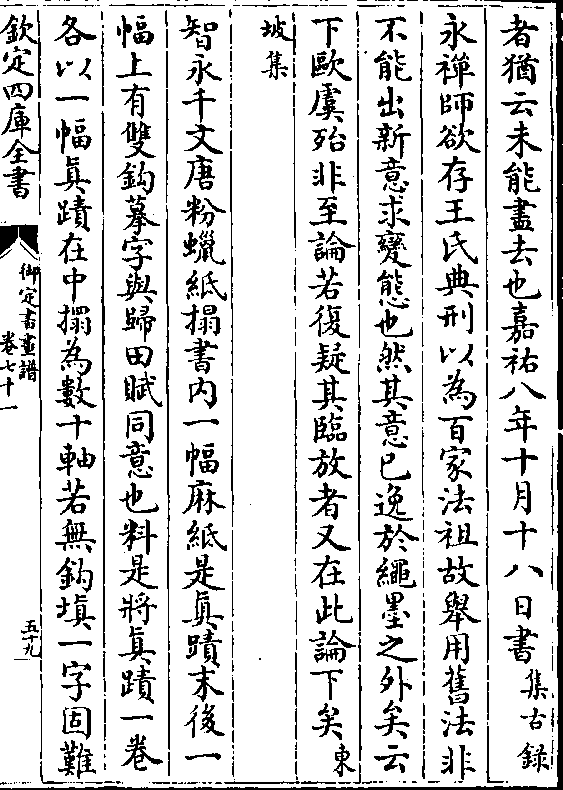 者猶云未能盡去也嘉祐八年十月十八日書集古錄
永禪師欲存王氏典刑以為百家法祖故舉用舊法非
不能出新意求變態也然其意已逸於繩墨之外矣云
下歐虞殆非至論若復疑其臨放者又在此論下矣東
坡集
智永千文唐粉蠟紙搨書内一幅麻紙是真蹟末後一
幅上有雙鈎摹字與歸田賦同意也料是將真蹟一卷
各以一幅真蹟在中搨為數十軸若無鈎填一字固難
欽定四庫全書
御定書畫譜
卷七十一
五十九